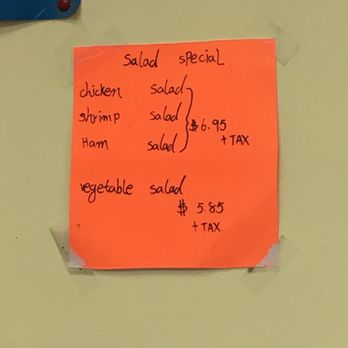 salad special
chicken salad
shrimp salad
$6.95
Ham salad
+ TAX
vegetable salad
$ 5.85
+ TAX